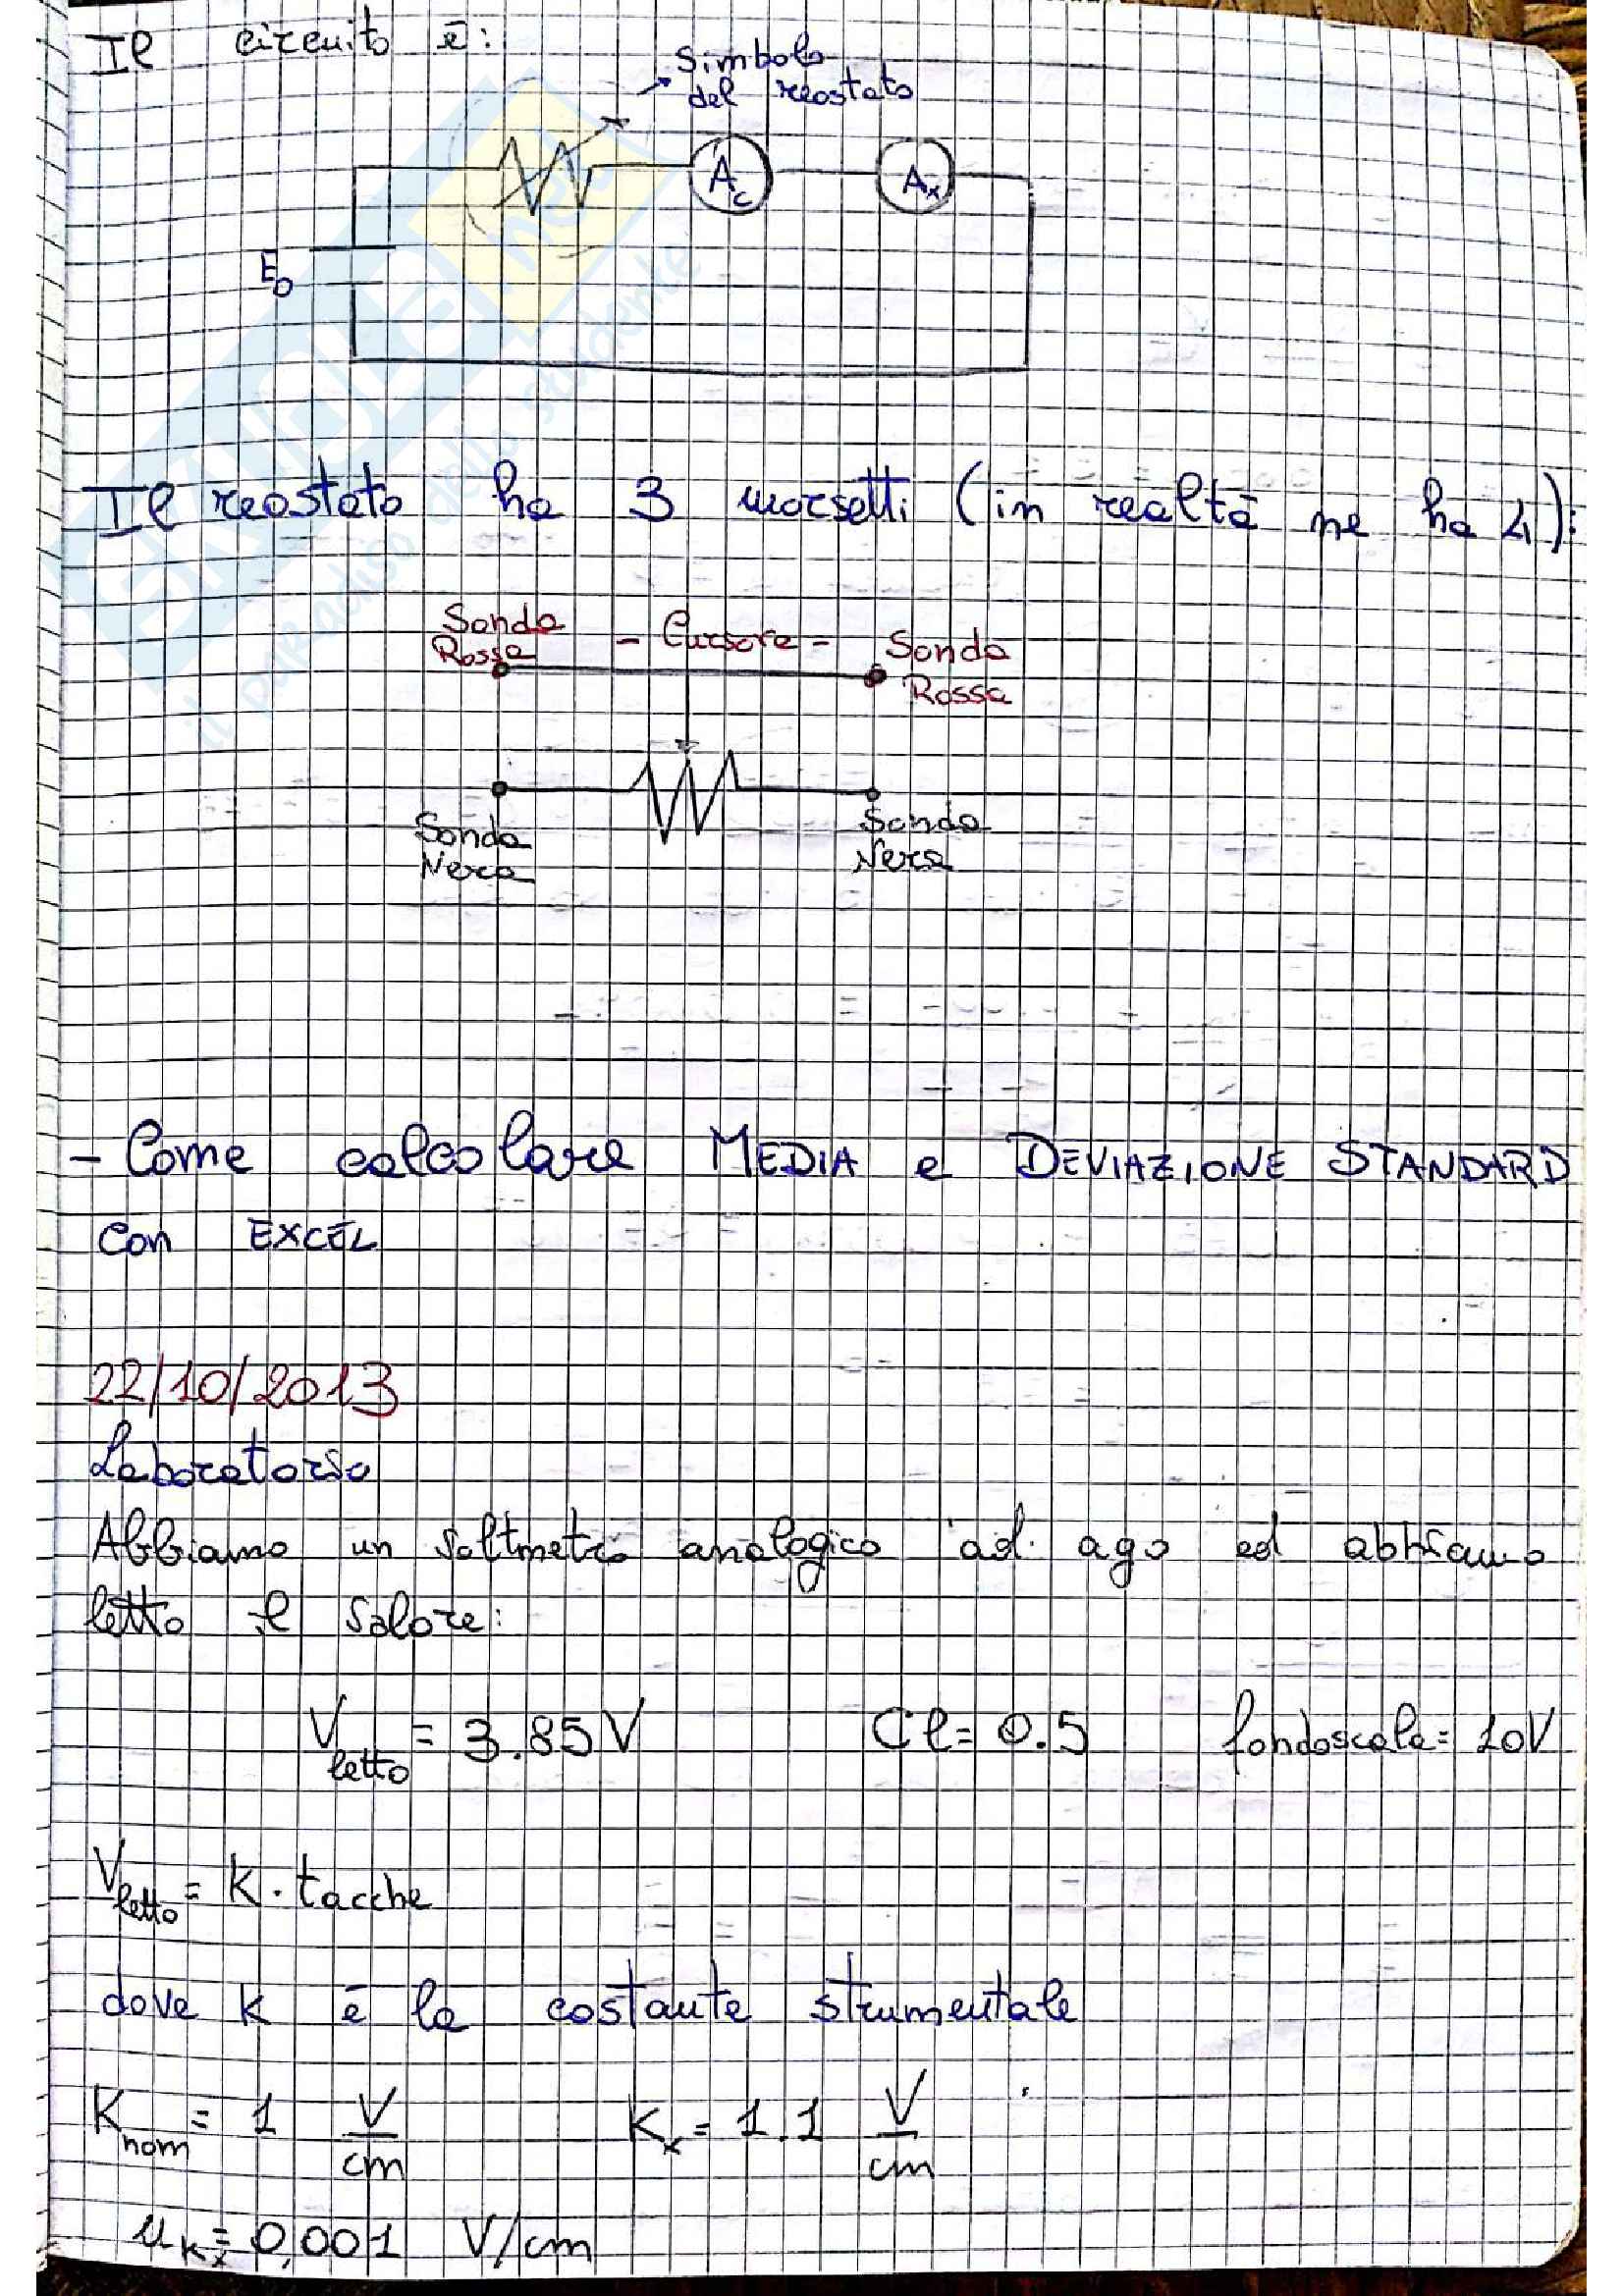 Il circuito è:
Simbolo
del reostato
Ac
Ax
E0
Il reostato ha 3 morsetti (in realtà ne ha 4):
Sonda
Rossa
- Cursore -
Sonda
Rossa
Sonda
Nera
Sonda
Nera
- Come calcolare MEDIA e DEVIAZIONE STANDARD
con EXCEL
22/10/2013
Laboratorio
Abbiamo un Voltmetro analogico ad ago ed abbiamo
letto il valore:
V letto = 3.85 V Cl = 0.5 fondoscala = 10V
V letto = K · tacche
dove K è la costante strumentale
K nom = 1 V/cm Kx = 1.1 V/cm
uKx = 0,001 V/cm
SKUOLA.net
il paradiso dello studente